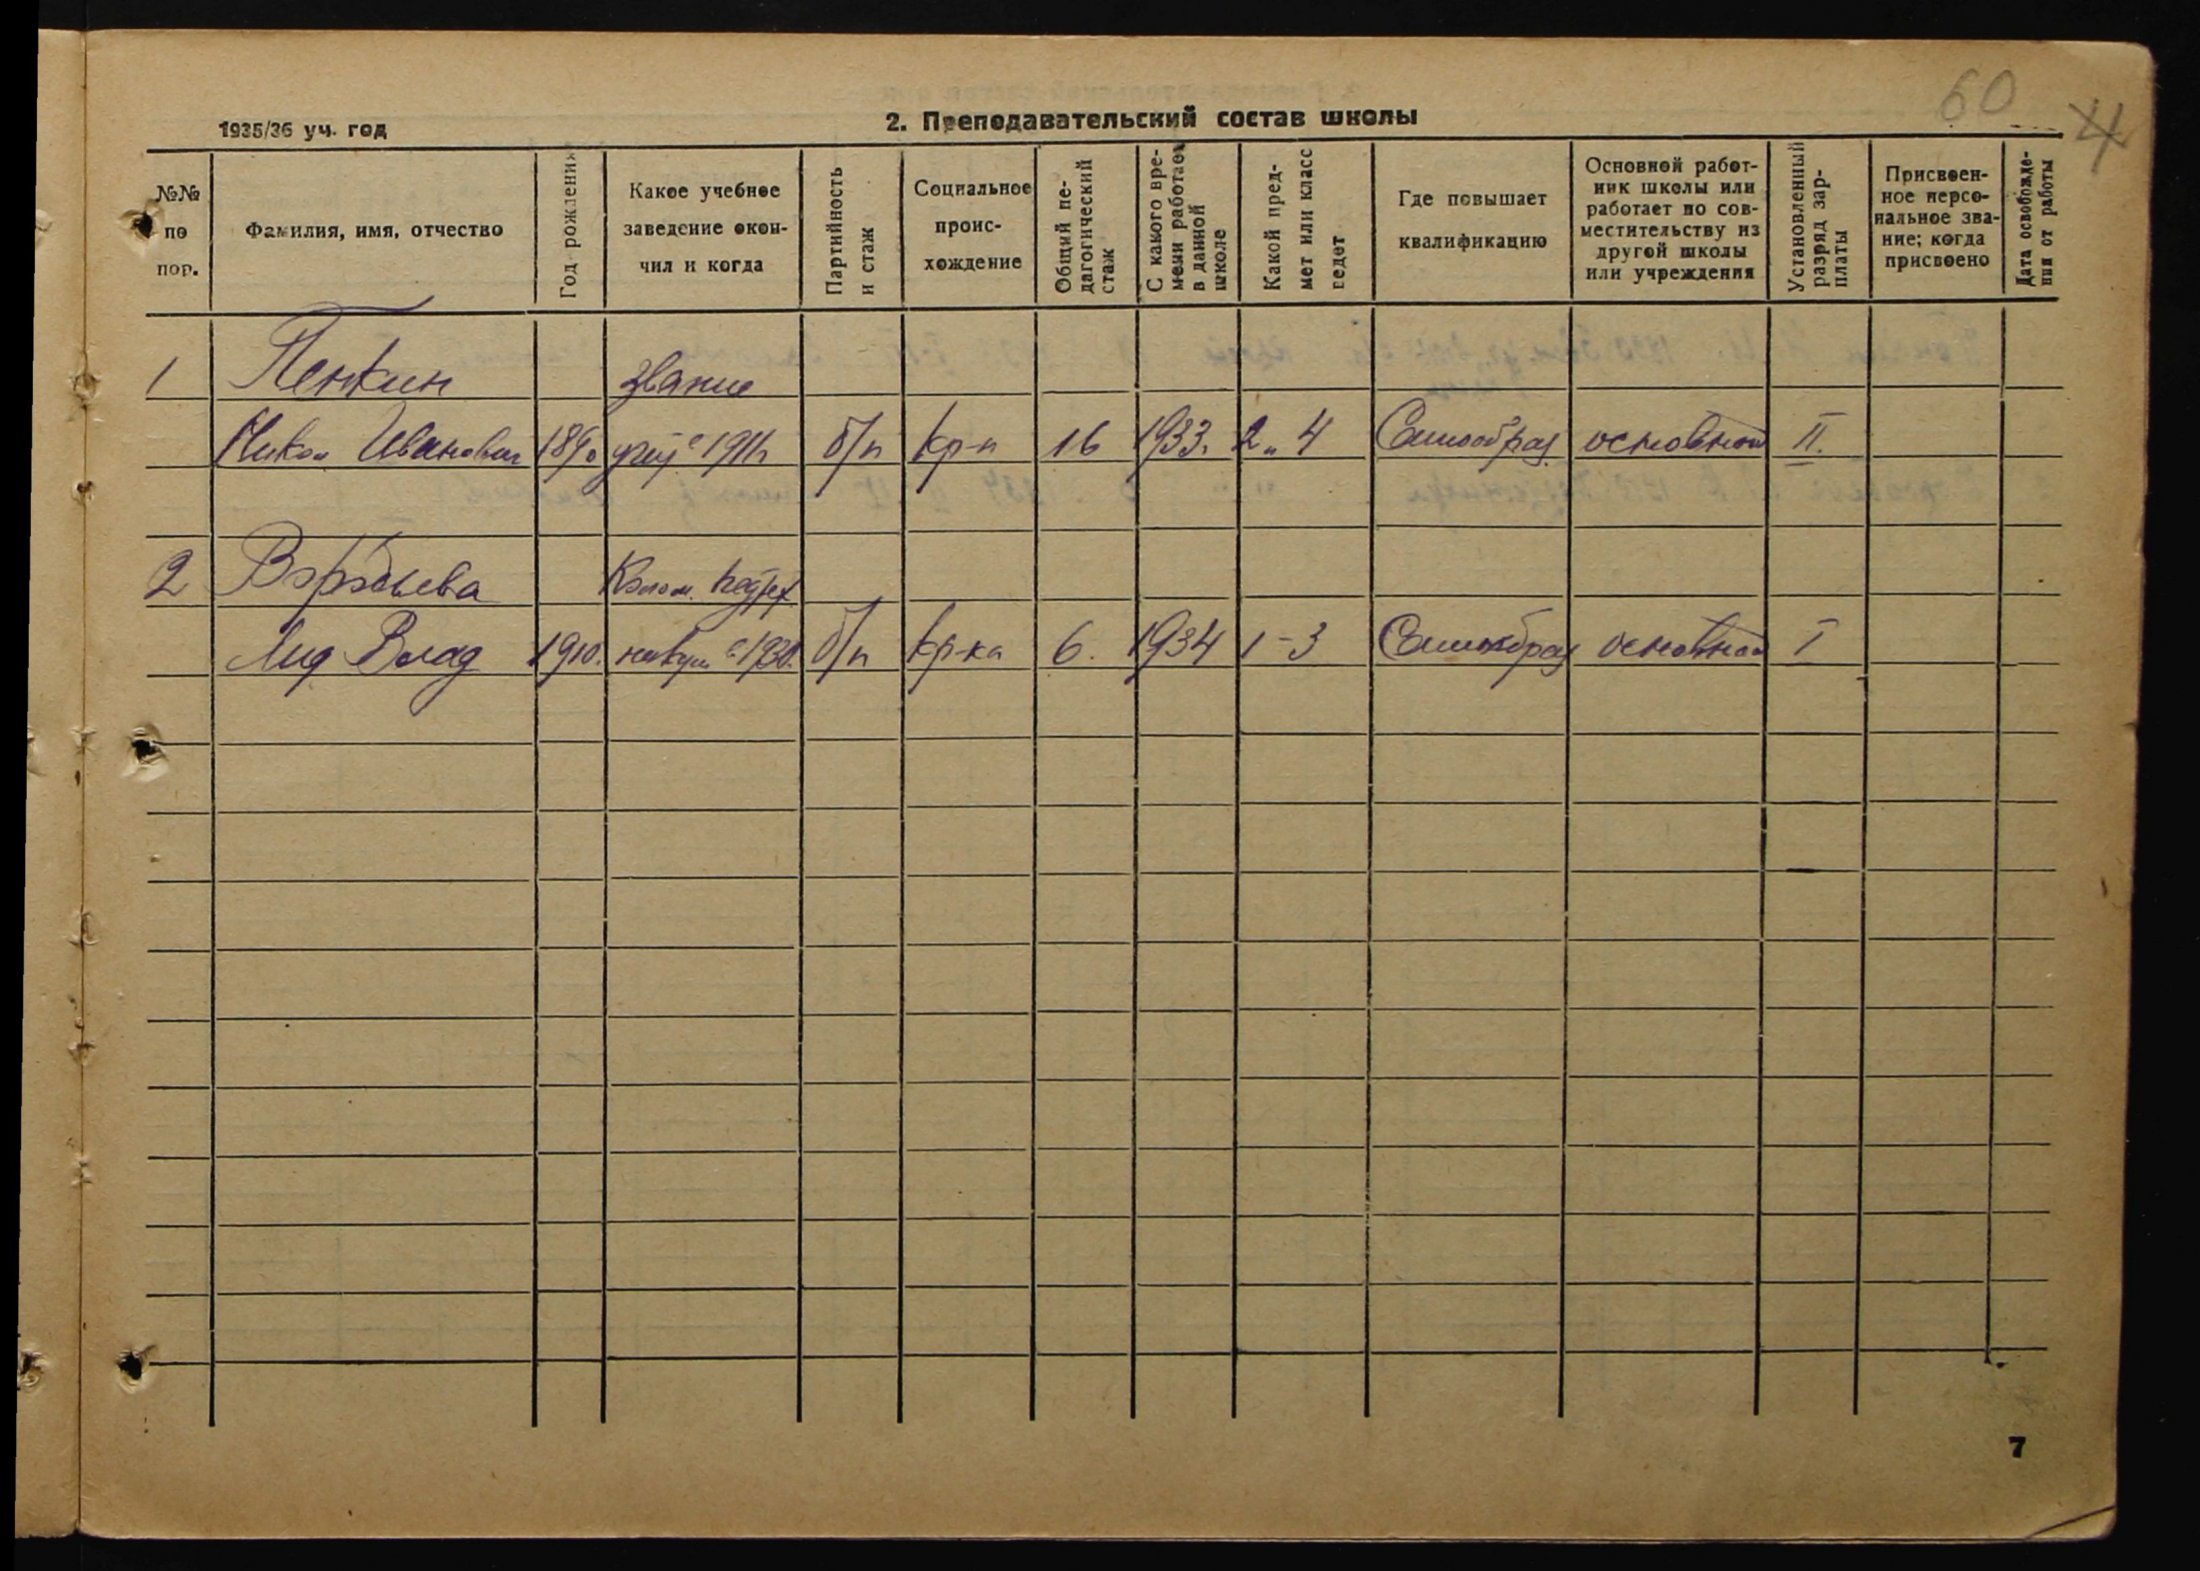 60
4
1935/36 уч. год
2. Преподавательский состав школы
№№ по пор.
Фамилия, имя, отчество
Год рождения
Какое учебное заведение окончил и когда
Партийность и стаж
Социальное происхождение
Общий педагогический стаж
С какого времени работает в данной школе
Какой предмет или класс ведет
Где повышает квалификацию
Основной работник школы или работает по совместительству из другой школы или учреждения
Установленный разряд зарплаты
Присвоенное персональное звание; когда присвоено
Дата освобождения от работы
1 Пенкин звание
Никол Иванович 1890 учит с 1911г б/п кр-н 16 1933г. 2 и 4 Самообраз. основной II.
2 Воробьева Колом. педтех
Лид Влад 1910. никум в 1930. б/п кр-ка 6. 1934 1-3 Самообраз основной I
7